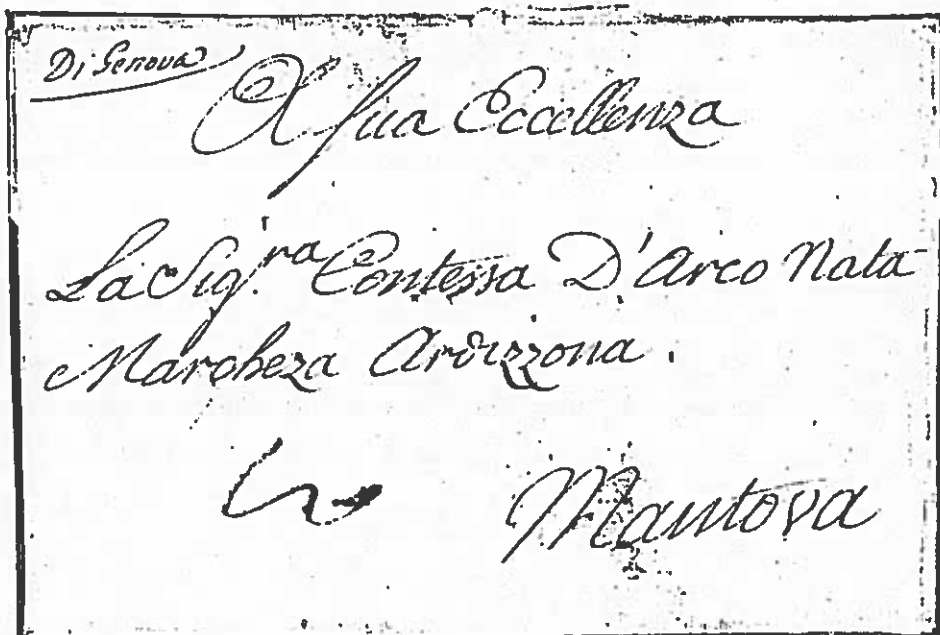 Di Genova
A Sua Eccellenza
La Sig.ra Contessa D'Arco Nata
Marcheza Ardizzona.
Mantova